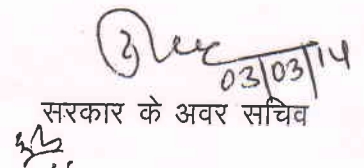 03/03/14
सरकार के अवर सचिव